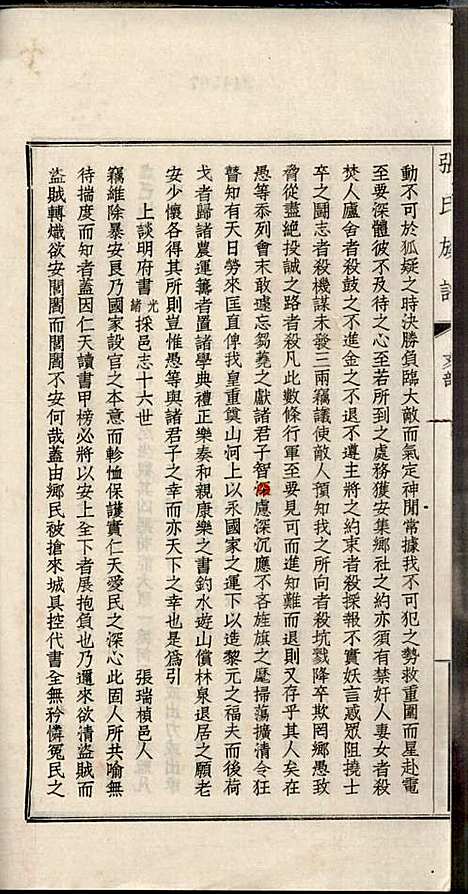 張氏族譜
文部
動不可於狐疑之時決勝負臨大敵而氣定神閒常據我不可犯之勢救重圍而星赴電
至要深體彼不及待之心至若所到之處務獲安集鄉社之約亦須有禁奸人妻女者殺
焚人廬舍者殺鼓之不進金之不退不遵主將之約束者殺採報不實妖言惑眾阻撓士
卒之鬪志者殺機謀未發三兩竊議使敵人預知我之所向者殺坑戮降卒欺罔鄉愚致
脅從盡絕投誠之路者殺凡此數條行軍至要見可而進知難而退又存乎其人矣在
愚等忝列會末敢遽忘芻蕘之獻諸君子智深慮深沉應不吝旌旗之麾掃蕩擴清令狂
瞽知有天日勞來匡直俾我皇重奠山河上以永國家之運下以造黎元之福夫而後荷
戈者歸諸農運籌者置諸學典禮正樂奏和親康樂之書釣水遊山償林泉退居之願老
安少懷各得其所則豈惟愚等與諸君子之幸而亦天下之幸也是為引
上談明府書 光緒採邑志十六世 張瑞楨邑人
竊維除暴安良乃國家設官之本意而軫恤保護實仁天愛民之深心此固人所共喻無
待揣度而知者蓋因仁天讀書甲榜必將以安上全下者展抱負也乃邇來欲清盜賊而
盜賊轉熾欲安閭閻而閭閻不安何哉蓋由鄉民被搶來城具控代書全無矜憐冤民之